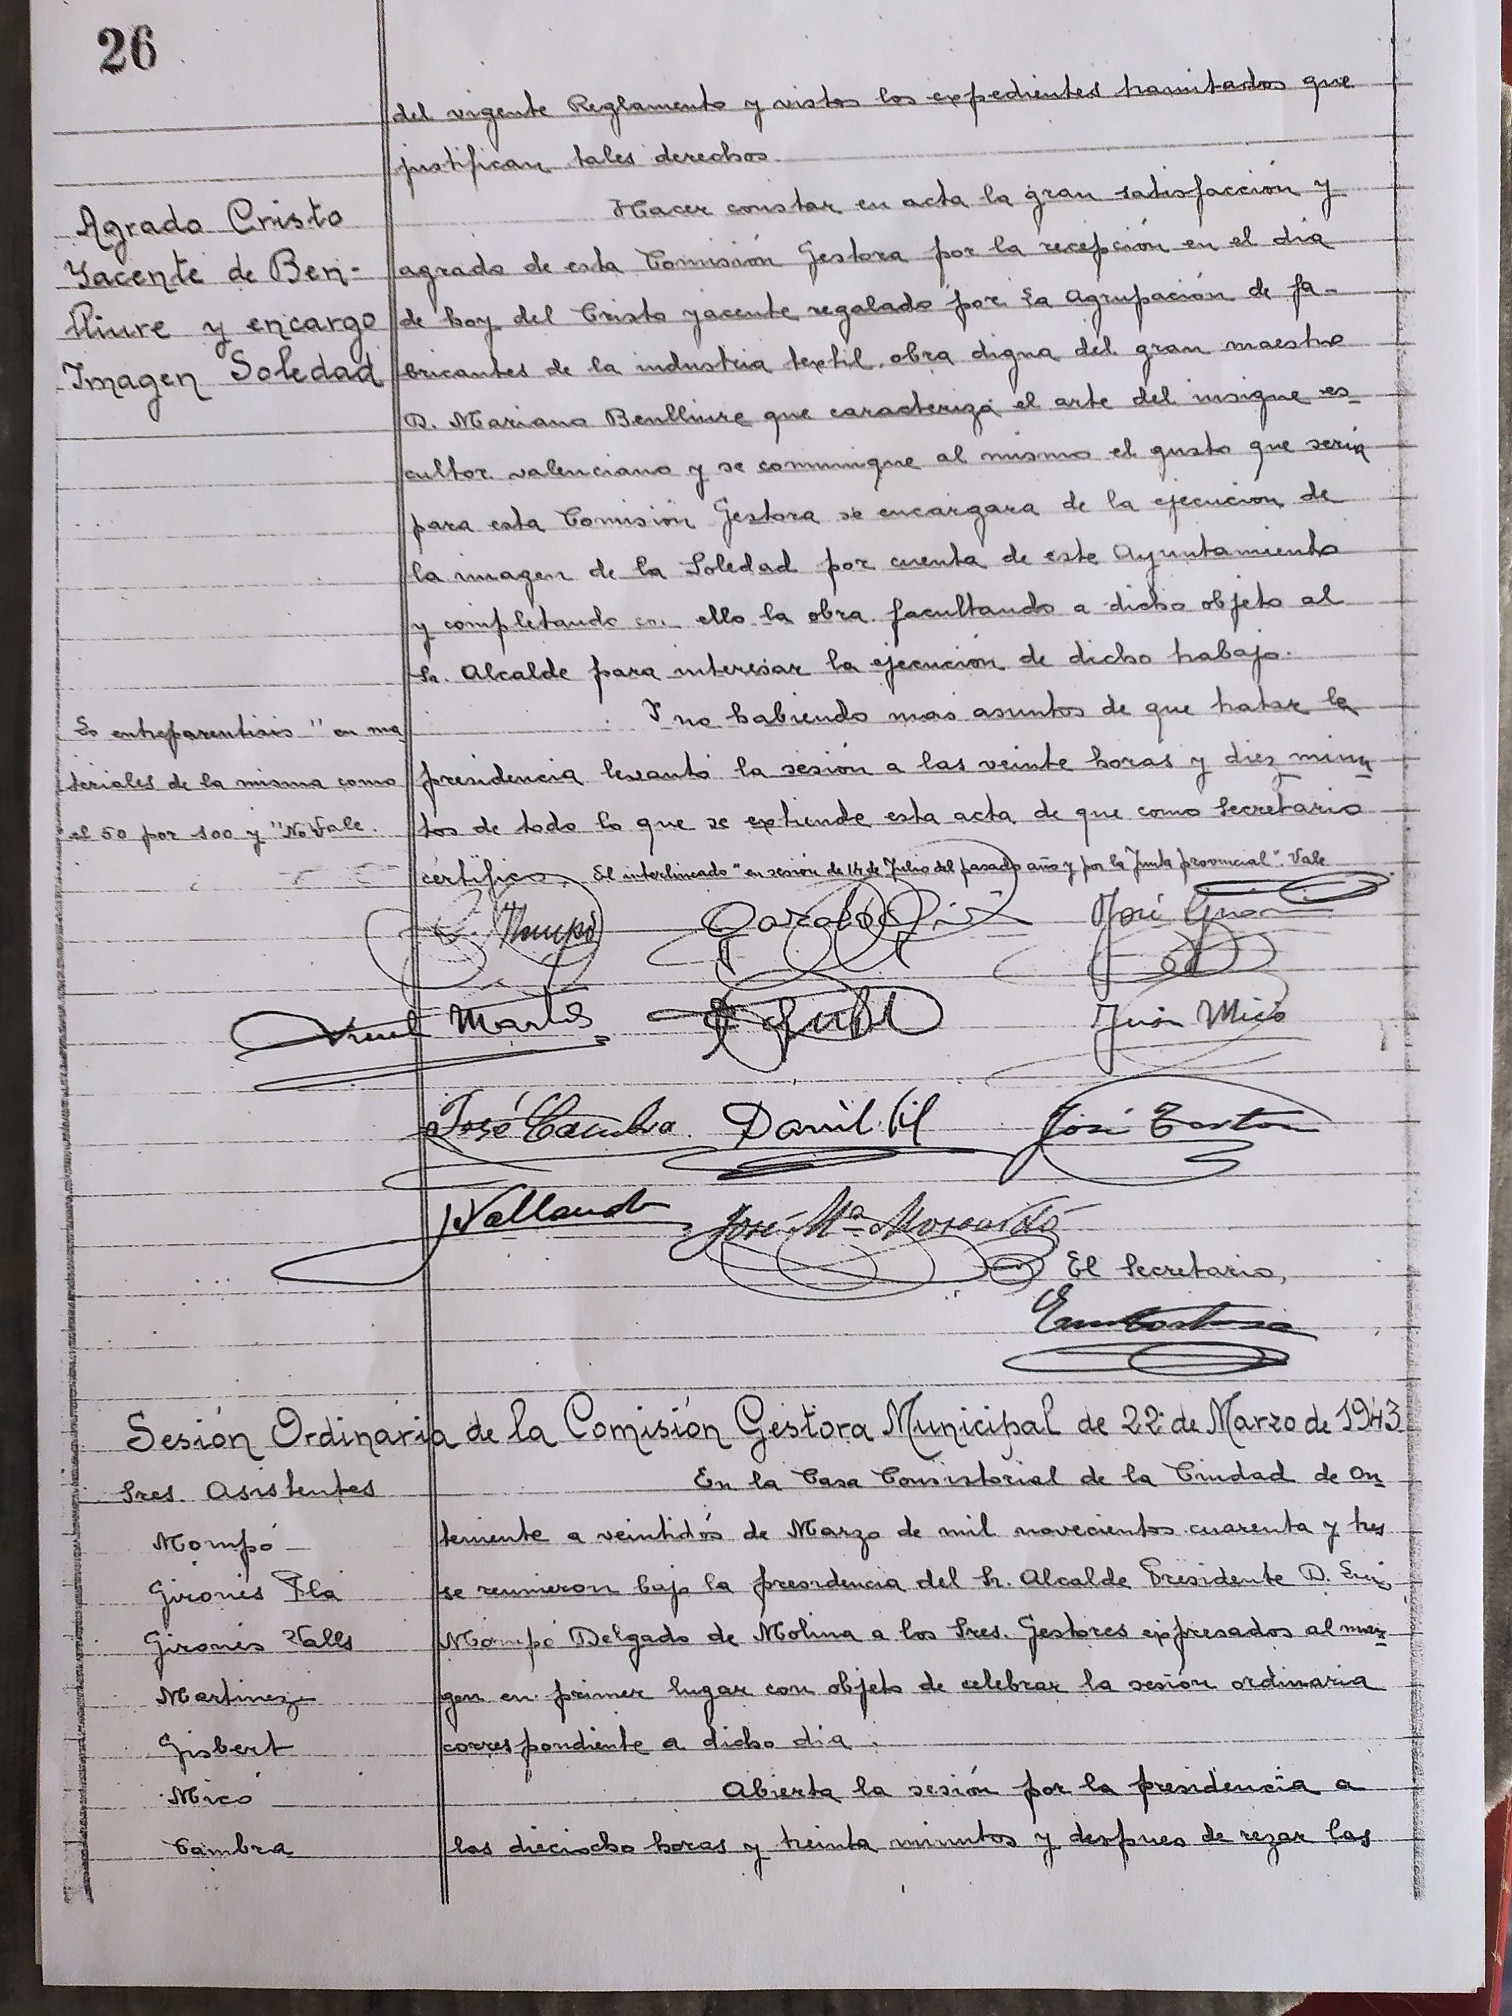 26
del vigente Reglamento y vistos los expedientes tramitados que
justifican tales derechos.
Agrado Cristo
Yacente de Ben-
lliure y encargo
Imagen Soledad
Hacer constar en acta la gran satisfacción y
agrado de esta Comisión Gestora por la recepción en el dia
de hoy del Cristo yacente regalado por la Agrupación de fa-
bricantes de la industria textil, obra digna del gran maestro
D. Mariano Benlliure que caracteriza el arte del insigne es-
cultor valenciano y se comunique al mismo el gusto que seria
para esta Comisión Gestora se encargara de la ejecución de
la imagen de la Soledad por cuenta de este Ayuntamiento
y completando con ello la obra facultando a dicho objeto al
Sr. Alcalde para interesar la ejecución de dicho trabajo.
Lo entreparentisis "en ma
teriales de la misma como
el 50 por 100 y "No Vale.
Y no habiendo mas asuntos de que tratar la
presidencia levantó la sesión a las veinte horas y diez minu-
tos de todo lo que se extiende esta acta de que como Secretario
certifico. El interlineado "en sesión de 14 de Julio del pasado año y por la Junta provincial". Vale
Mompó
José
Martínez
Juan Micó
José Cambra Daniel Gil José
José Mª
El Secretario,
Sesión Ordinaria de la Comisión Gestora Municipal de 22 de Marzo de 1943
Sres. Asistentes
Mompó
Gironés Pla
Gironés Valls
Martinez
Gisbert
Micó
Cambra
En la Casa Consistorial de la Ciudad de On-
teniente a veintidós de Marzo de mil novecientos cuarenta y tres
se reunieron bajo la presidencia del Sr. Alcalde Presidente D. Luis
Mompó Delgado de Molina a los Sres. Gestores expresados al mar-
gen en primer lugar con objeto de celebrar la sesión ordinaria
correspondiente a dicho dia.
Abierta la sesión por la presidencia a
las dieciocho horas y treinta minutos y despues de rezar las